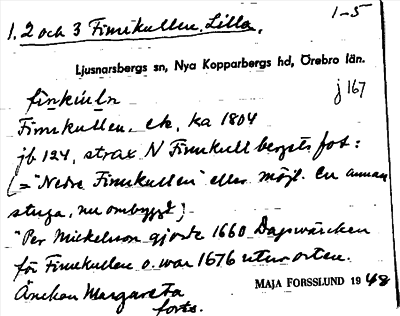 1, 2 och 3 Finnkullen, Lilla, 1-5
Ljusnarsbergs sn, Nya Kopparbergs hd, Örebro län.
finkùln j 167
Finnkullen, ek, ka 1804
jb 124, strax N Finnkullbergets fot:
(= "Nedre Finnkullen" eller möjl. en annan
stuga, nu ombyggd;
"Per Mickelsson gjorde 1660 Dagsvärcken
för Finnkullen o. war 1676 uturorten.
Änckan Margareta
forts.
MAJA FORSSLUND 1948